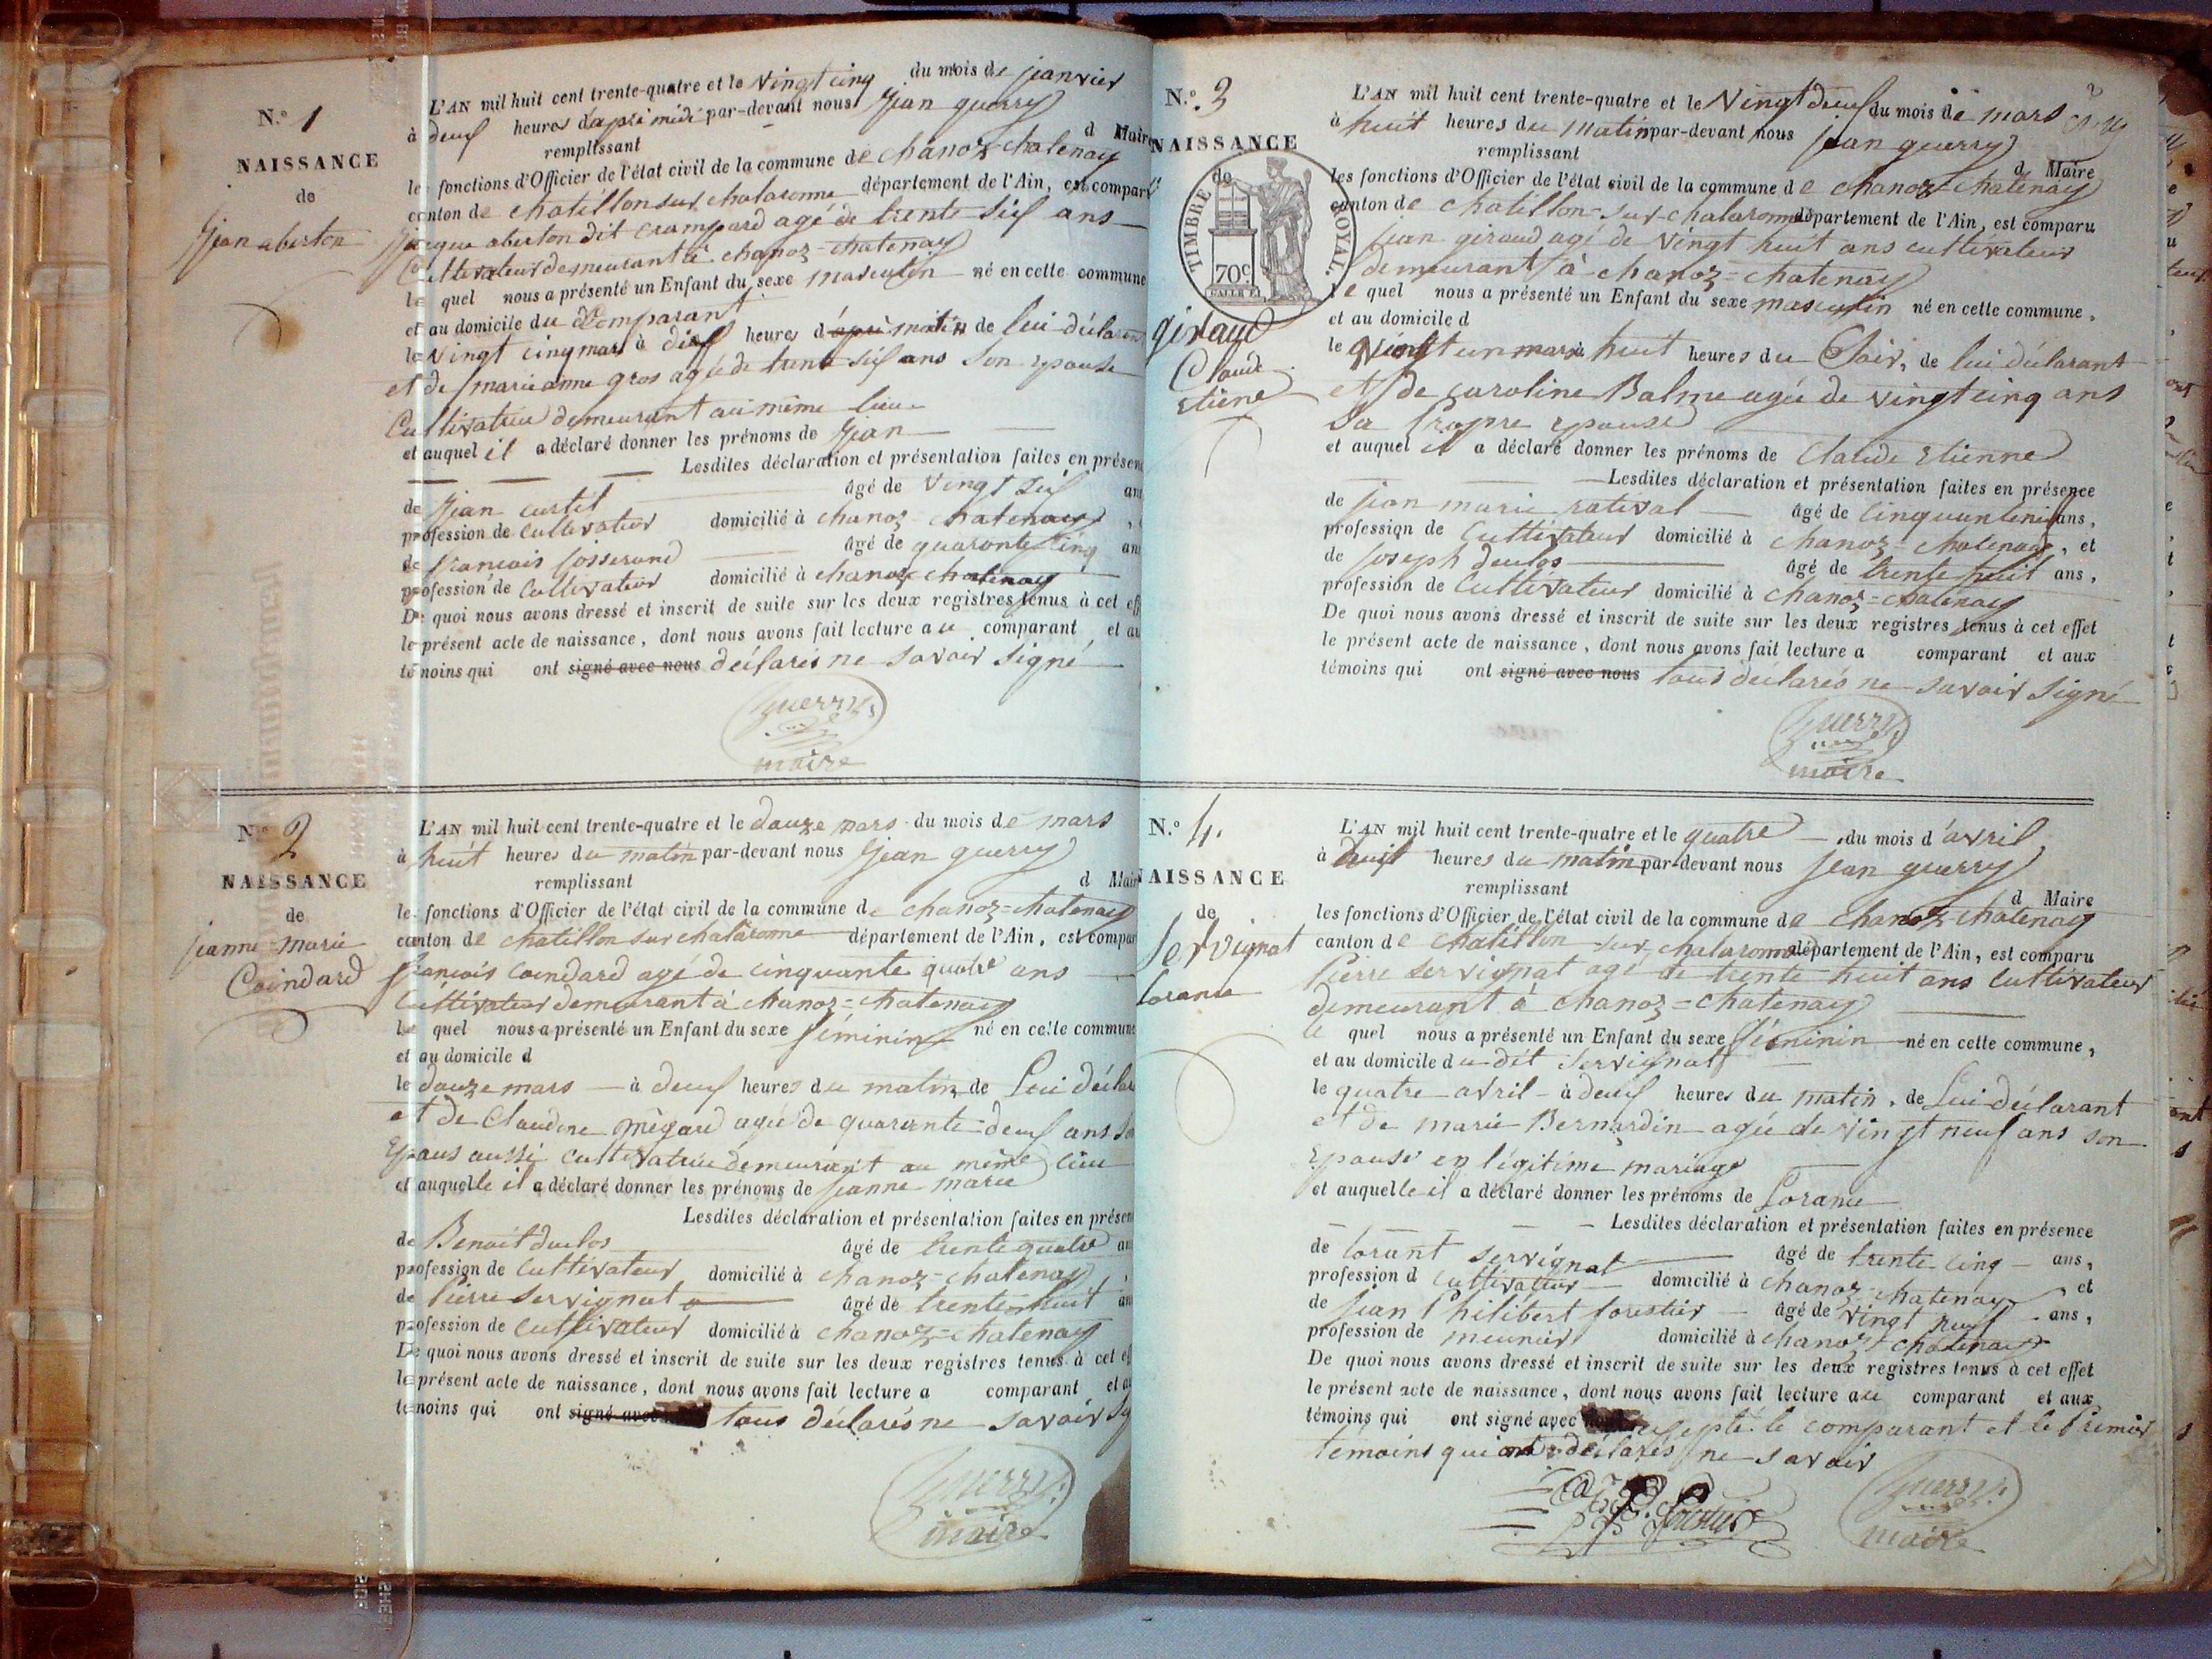 N.º 1
NAISSANCE
de
Jean aberton
L'AN mil huit cent trente-quatre et le Vingt cinq du mois de janvier
à deux heures d'apré midi par-devant nous Jean guerry
remplissant d Maire
les fonctions d'Officier de l'état civil de la commune de chanoz chatenay
canton de chatillon sur chalaronne département de l'Ain, est comparu
Jacque aberton dit crampard agé de trente six ans
Cultivateur demeurant à chanoz=chatenay
le quel nous a présenté un Enfant du sexe masculin né en cette commune
et au domicile du Comparant
le vingt cinq mars à dix heures d'apré matin de lui déclarant
et de marie anne gros agée de trente six ans son epouse
Cultivatrice demeurant au même lieu
et auquel il a déclaré donner les prénoms de Jean
Lesdites déclaration et présentation faites en présen
de Jean curtil âgé de vingt six an
profession de Cultivateur domicilié à chanoz chatenay
de francois Josserand âgé de quarante cinq an
profession de Cultivateur domicilié à chanoz chatenay
De quoi nous avons dressé et inscrit de suite sur les deux registres tenus à cet eff
le présent acte de naissance, dont nous avons fait lecture au comparant et au
témoins qui ont signé avec nous déclarés ne savoir signé
Guerry
maire
N.º 2
NAISSANCE
de
jeanne=marie
Coindard
L'AN mil huit cent trente-quatre et le douze mars du mois de mars
à huit heures du matin par-devant nous Jean guerry
remplissant d Mair
les fonctions d'Officier de l'état civil de la commune de chanoz=chatenay
canton de chatillon sur chalaronne département de l'Ain, est compar
francois Coindard agé de cinquante quatre ans
Cultivateur demeurant à chanoz=chatenay
le quel nous a présenté un Enfant du sexe féminin né en cette commune
et au domicile d
le douze mars à deux heures du matin, de Lui déclar
et de Claudine mégard agée de quarante=deux ans son
Epous aussi cultivatrice demeurant au même lieu
et auquelle il a déclaré donner les prénoms de Jeanne marie
Lesdites déclaration et présentation faites en présen
de Benoit duclos âgé de trente quatre an
profession de Cultivateur domicilié à chanoz=chatenay
de Pierre Servignat âgé de trente huit an
profession de Cultivateur domicilié à chanoz=chatenay
De quoi nous avons dressé et inscrit de suite sur les deux registres tenus à cet ef
le présent acte de naissance, dont nous avons fait lecture a comparant et au
témoins qui ont signé avec tous déclarés ne savoir sig
Guerry
maire
N.º 3
NAISSANCE
de
TIMBRE ROYAL.
70c
giraud
Claude
Etiene
L'AN mil huit cent trente-quatre et le Vingt deux du mois de mars
à huit heures du matin par-devant nous jean guerry
remplissant d Maire
les fonctions d'Officier de l'état civil de la commune de chanoz=chatenay
canton de chatillon=sur=chalaronne département de l'Ain, est comparu
jean giraud agé de vingt huit ans cultivateur
demeurant à chanoz=chatenay
le quel nous a présenté un Enfant du sexe masculin né en cette commune,
et au domicile d
le Vingt un mars à huit heures du Soir, de lui déclarant
et de caroline Balme agée de vingt cinq ans
Sa Propre epouse
et auquel il a déclaré donner les prénoms de Claude Etienne
Lesdites déclaration et présentation faites en présence
de jean marie rativat âgé de Cinquante ans,
profession de Cultivateur domicilié à chanoz=chatenay, et
de Joseph duclos âgé de trente huit ans,
profession de Cultivateur domicilié à chanoz=chatenay
De quoi nous avons dressé et inscrit de suite sur les deux registres tenus à cet effet
le présent acte de naissance, dont nous avons fait lecture a comparant et aux
témoins qui ont signé avec nous tous déclarés ne savoir signé
Guerry
maire
N.º 4.
NAISSANCE
de
Servignat
Lorance
L'AN mil huit cent trente-quatre et le quatre du mois d'avril
à huit heures du matin par-devant nous Jean guerry
remplissant d Maire
les fonctions d'Officier de l'état civil de la commune de chanoz=chatenay
canton de chatillon sur chalaronne département de l'Ain, est comparu
Pierre Servignat agé de trente huit ans Cultivateur
demeurant à chanoz=chatenay
le quel nous a présenté un Enfant du sexe féminin né en cette commune,
et au domicile du dit Servignat
le quatre avril à deux heures du matin, de Lui déclarant
et de marie Bernardin agée de vingt neuf ans son
Epouse en légitime mariage
et auquelle il a déclaré donner les prénoms de Lorance
Lesdites déclaration et présentation faites en présence
de Lorant Servignat âgé de trente cinq ans,
profession d Cultivateur domicilié à chanoz=chatenay, et
de Jean Philibert forestier âgé de vingt neuf ans,
profession de meunier domicilié à chanoz=chatenay
De quoi nous avons dressé et inscrit de suite sur les deux registres tenus à cet effet
le présent acte de naissance, dont nous avons fait lecture au comparant et aux
témoins qui ont signé avec excepté le comparant et le Premier
témoins qui ont déclarés ne savoir
Guerry
maire